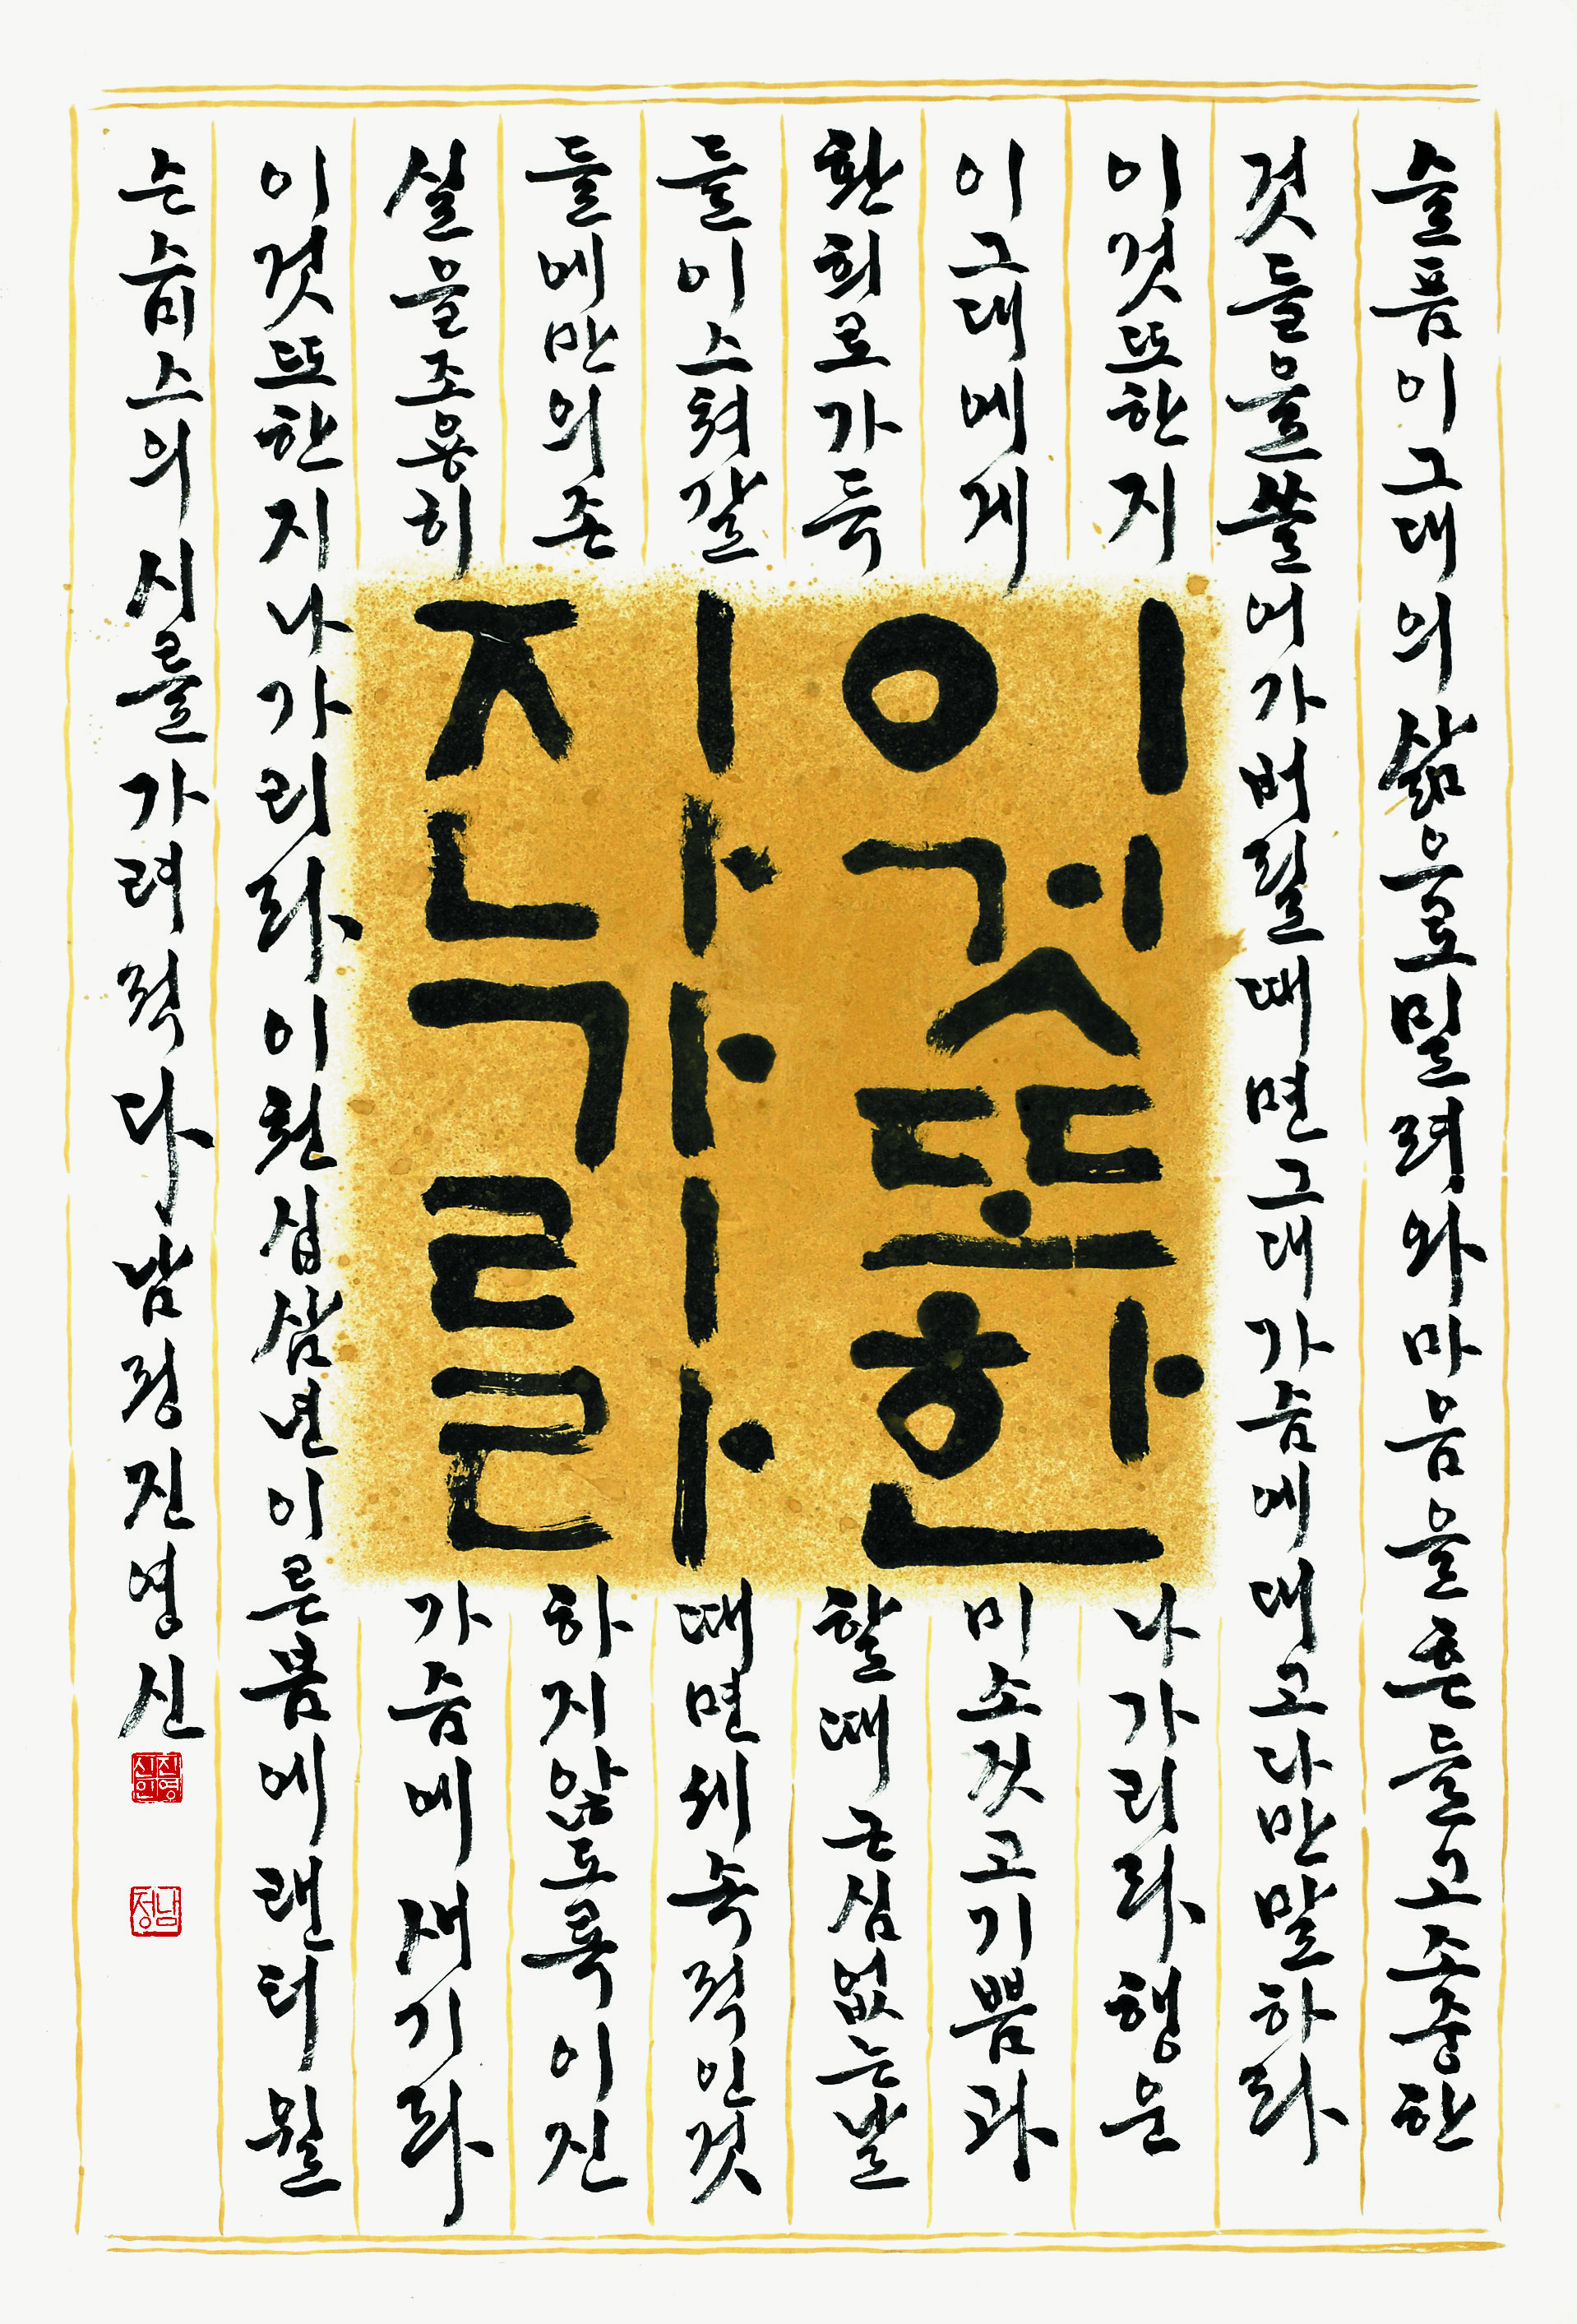 슬픔이그대의삶으로밀려와마음을흔들고소중한
것들을쓸어가버릴때면그대가슴에대고다만말하라
이것또한지나가리라행운
이그대에게미소짓고기쁨과
환희로가득할때근심없는날
들이스쳐갈때면세속적인것
들에만의존하지않도록이진
실을조용히가슴에새기라
이것또한지나가리라이천십삼년이른봄에랜터윌
슨스미스의시를가려적다남정진영신
이것또한
지나가리라
진영신인
남정